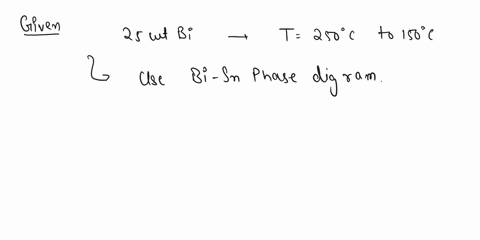 Given
25 wt Bi → T = 250°C to 150°C
Use Bi-Sn Phase digram.